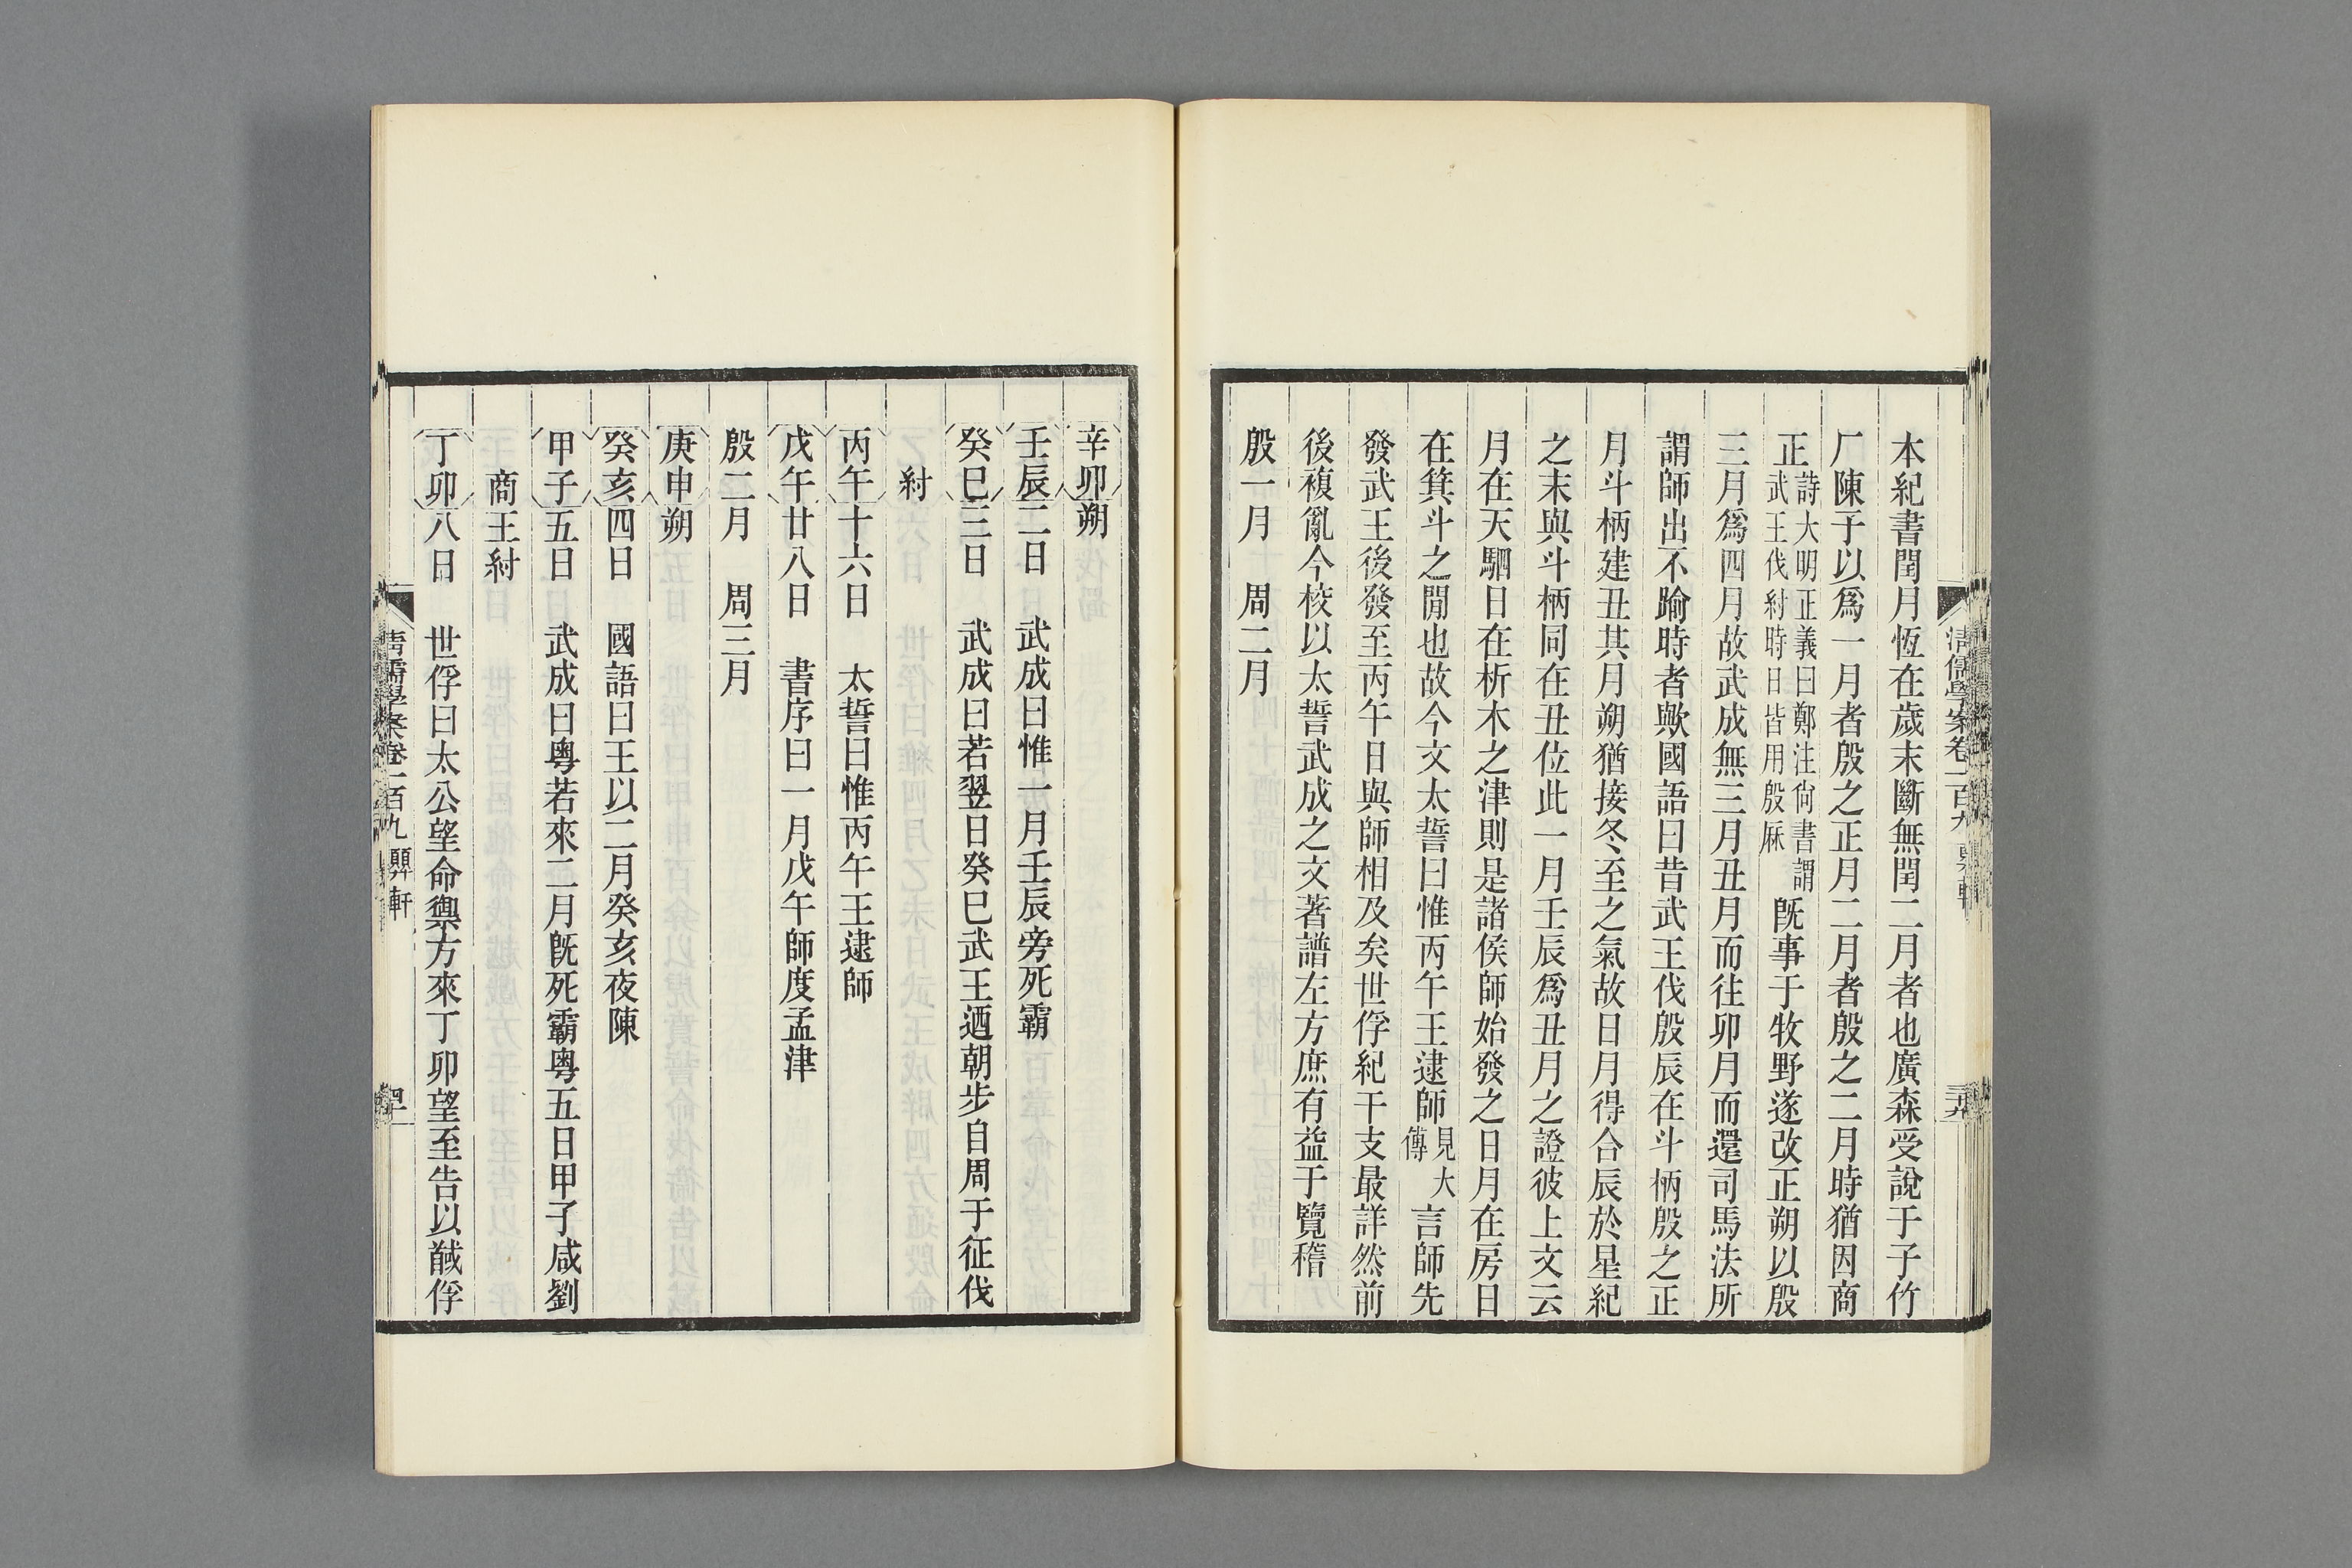 本紀書閏月恆在歲末斷無閏二月者也廣森受說于子竹
厂陳子以爲一月者殷之正月二月者殷之二月時猶因商
正詩大明正義曰鄭注尙書謂武王伐紂時日皆用殷厤旣事于牧野遂改正朔以殷
三月爲四月故武成無三月丑月而往卯月而還司馬法所
謂師出不踰時者歟國語曰昔武王伐殷辰在斗柄殷之正
月斗柄建丑其月朔猶接冬至之氣故日月得合辰於星紀
之末與斗柄同在丑位此一月壬辰爲丑月之證彼上文云
月在天駟日在析木之津則是諸侯師始發之日月在房日
在箕斗之閒也故今文太誓曰惟丙午王逮師見大傳言師先
發武王後發至丙午日與師相及矣世俘紀干支最詳然前
後複亂今校以太誓武成之文著譜左方庶有益于覽稽
殷一月　周二月
清儒學案卷一百九
辛卯朔
壬辰二日　武成曰惟一月壬辰旁死霸
癸巳三日　武成曰若翌日癸巳武王迺朝步自周于征伐
紂
丙午十六日　太誓曰惟丙午王逮師
戊午廿八日　書序曰一月戊午師度孟津
殷二月　周三月
庚申朔
癸亥四日　國語曰王以二月癸亥夜陳
甲子五日　武成曰粵若來二月旣死霸粵五日甲子咸劉
商王紂
丁卯八日　世俘曰太公望命禦方來丁卯望至告以馘俘
清儒學案卷一百九　顨軒